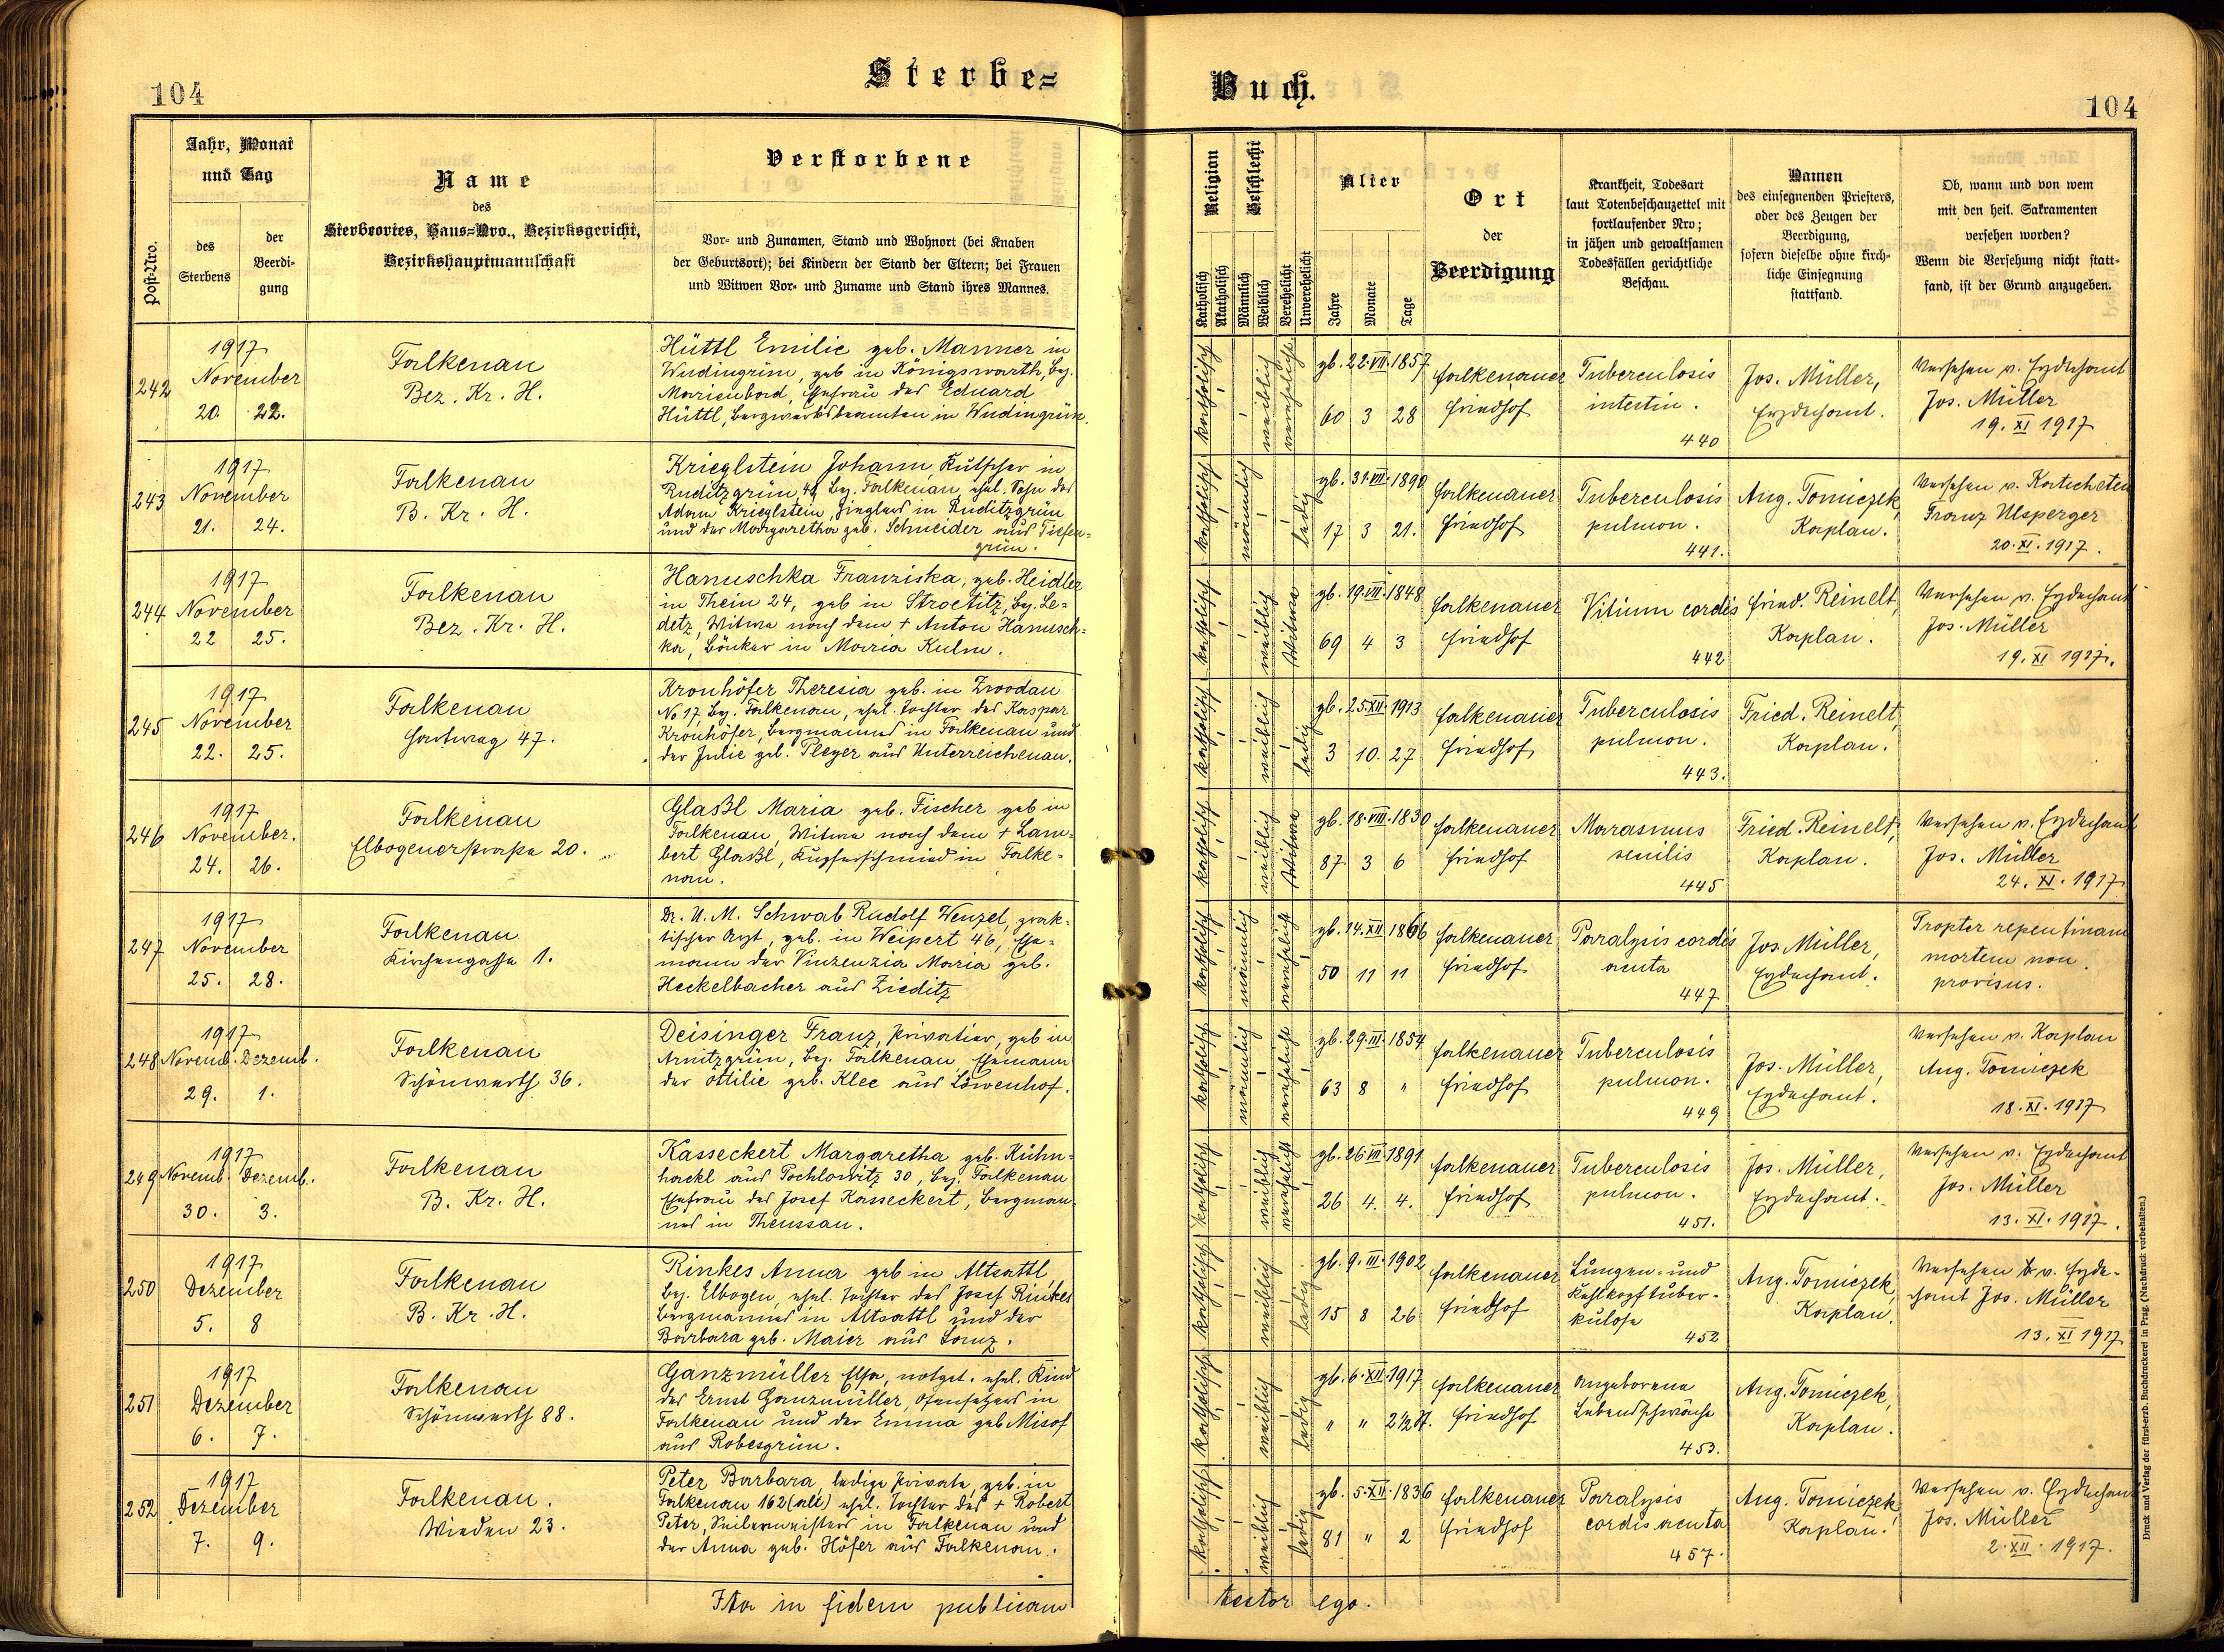 104
Sterbe=
Jahr, Monat und Tag
Post-Nro.
des Sterbens
der Beerdi-
gung
Name
des
Sterbeortes, Haus=Nro., Bezirksgericht,
Bezirkshauptmannschaft
Verstorbene
Vor- und Zunamen, Stand und Wohnort (bei Knaben
der Geburtsort); bei Kindern der Stand der Eltern; bei Frauen
und Witwen Vor- und Zuname und Stand ihres Mannes.
242
1917
November
20. 22.
Falkenau
Bez. Kr. H.
Hüttl Emilie geb. Manner in
Wudingrün, geb in Königswarth, Bez.
Marienbad, Ehefrau des Eduard
Hüttl, Bergwerksbeamten in Wudingrün.
243
1917
November
21. 24.
Falkenau
B. Kr. H.
Krieglstein Johann, Kutscher in
Ruditzgrün, 49 Bez. Falkenau, ehel. Sohn des
Adam Krieglstein, Zieglers in Ruditzgrün
und der Margaretha geb. Schneider aus Tiefen=
grün.
244
1917
November
22 25.
Falkenau
Bez. Kr. H.
Hanuschka Franziska, geb. Heidler
in Thein 24, geb in Stroetitz, Bez. Le=
detz, Witwe nach dem + Anton Hanusch=
ka, Bäcker in Maria Kulm.
245
1917
November
22. 25.
Falkenau
Hartweg 47.
Kronhöfer Theresia geb. in Zwodau
No 17, Bez. Falkenau, ehel. Tochter des Kaspar
Kronhöfer, Bergmannes in Falkenau und
der Julie geb. Pleyer aus Unterreichenau.
246
1917
November.
24. 26.
Falkenau
Elbogenerstraße 20.
Glaßl Maria geb. Fischer geb in
Falkenau, Witwe nach dem + Lam=
bert Glaßl, Kupferschmied in Falke=
nau.
247
1917
November
25. 28.
Falkenau
Kirchengasse 1.
Dr. U. M. Schwab Rudolf Wenzel, prak=
tischer Arzt, geb. in Weipert 46, Ehe=
mann der Vinzenzia Maria geb.
Heckelbacher aus Zieditz
248
1917
Novemb. Dezemb.
29. 1.
Falkenau
Schönwerth 36.
Deisinger Franz, Privatier, geb in
Arnitzgrün, Bez. Falkenau Ehemann
der Ottilie geb. Klee aus Löwenhof.
249
1917
Novemb. Dezemb.
30. 3.
Falkenau
B. Kr. H.
Kasseckert Margaretha geb. Kühn=
hackl aus Pochlowitz 30, Bez. Falkenau
Ehefrau des Josef Kasseckert, Bergman=
nes in Theussau.
250
1917
Dezember
5. 8
Falkenau
B. Kr. H.
Rinkes Anna geb in Altsattl,
Bez. Elbogen, ehel. Tochter des Josef Rinkes
Bergmannes in Altsattl und der
Barbara geb. Maier aus Lanz.
251
1917
Dezember
6. 7.
Falkenau
Schönwerth 88.
Ganzmüller Elsa, notget. ehel. Kind
des Ernst Ganzmüller, Ofensetzers in
Falkenau und der Emma geb Misof
aus Robesgrün.
252
1917
Dezember
7. 9.
Falkenau.
Wieden 23.
Peter Barbara, ledige Private, geb. in
Falkenau 162 (alt) ehel. Tochter des + Robert
Peter, Seilermeisters in Falkenau und
der Anna geb. Höfer aus Falkenau.
Ita in fidem publicam
Buch.
104
Religion
Katholisch
Akatholisch
Geschlecht
Männlich
Weiblich
Verehelicht
Unverehelicht
Alter
Jahre
Monate
Tage
Ort
der
Beerdigung
Krankheit, Todesart
laut Totenbeschauzettel mit
fortlaufender Nro;
in jähen und gewaltsamen
Todesfällen gerichtliche
Beschau.
Namen
des einsegnenden Priesters,
oder des Zeugen der
Beerdigung,
sofern dieselbe ohne kirch-
liche Einsegnung
stattfand.
Ob, wann und von wem
mit den heil. Sakramenten
versehen worden?
Wenn die Versehung nicht statt-
fand, ist der Grund anzugeben.
katholisch
weiblich
verehelicht
gb. 22.VII.1857
60 3 28
Falkenauer
Friedhof
Tuberculosis
intestin.
440
Jos. Müller,
Erzdechant.
Versehen v. Erzdechant
Jos. Müller
19. XI 1917
katholisch
männlich
ledig
gb. 31.VII.1890
17 3 21.
Falkenauer
Friedhof
Tuberculosis
pulmon.
441.
Aug. Tomiczek,
Kaplan.
Versehen v. Katecheten
Franz Ulsperger
20.XI.1917.
katholisch
weiblich
Witwe
gb. 19.VII.1848
69 4 3
Falkenauer
Friedhof
Vitium cordis
442
Fried. Reinelt,
Kaplan.
Versehen v. Erzdechant
Jos. Müller
19. XI 1917.
katholisch
weiblich
ledig
gb. 25.XII.1913
3 10. 27
Falkenauer
Friedhof
Tuberculosis
pulmon.
443.
Fried. Reinelt,
Kaplan.
katholisch
weiblich
Witwe
gb. 18.VIII.1830
87 3 6
Falkenauer
Friedhof
Marasmus
senilis
445
Fried. Reinelt,
Kaplan.
Versehen v. Erzdechant
Jos. Müller
24. XI. 1917
katholisch
männlich
verehelicht
gb. 14.XII.1866
50 11 11
Falkenauer
Friedhof
Paralysis cordis
acuta
447
Jos. Müller,
Erzdechant.
Propter repentinam
mortem non
provisus.
katholisch
männlich
verehelicht
gb. 29.III.1854
63 8 "
Falkenauer
Friedhof
Tuberculosis
pulmon.
449
Jos. Müller,
Erzdechant.
Versehen v. Kaplan
Aug. Tomiczek
18.XI.1917
katholisch
weiblich
verehelicht
gb. 26.VII.1891
26 4. 4.
Falkenauer
Friedhof
Tuberculosis
pulmon.
451.
Jos. Müller,
Erzdechant.
Versehen v. Erzdechant
Jos. Müller
13. XI. 1917.
katholisch
weiblich
ledig
gb. 9. III. 1902
15 8 26
Falkenauer
Friedhof
Lungen- und
Kehlkopftuber-
kulose
452
Aug. Tomiczek,
Kaplan.
Versehen v. Erzde-
chant Jos. Müller
13. XI 1917
katholisch
weiblich
ledig
gb. 6.XII.1917
" " 2½ St.
Falkenauer
Friedhof
Angeborene
Lebensschwäche
453.
Aug. Tomiczek,
Kaplan.
katholisch
weiblich
ledig
gb. 5.XII.1836
81 " 2
Falkenauer
Friedhof
Paralysis
cordis acuta
457.
Aug. Tomiczek,
Kaplan.
Versehen v. Erzdechant
Jos. Müller
2.XII.1917.
testor ego.
Druck und Verlag der fürst-erzb. Buchdruckerei in Prag. (Nachdruck vorbehalten.)